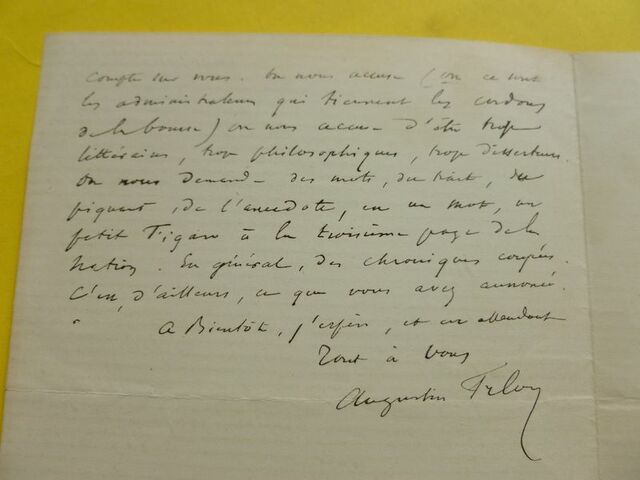 compte sur vous. On nous accuse (on ce sont
les administrateurs qui tiennent les cordons
de la bourse) on nous accuse d'être trop
littéraires, trop philosophiques, trop disserteurs.
On nous demande des mots, du trait, du
piquant, de l'anecdote, en un mot, un
petit Figaro à la troisième page de la
Nation. En général, des chroniques coupées.
C'est, d'ailleurs, ce que vous avez annoncé.
A Bientôt, j'espère, et en attendant
Tout à vous
Augustin